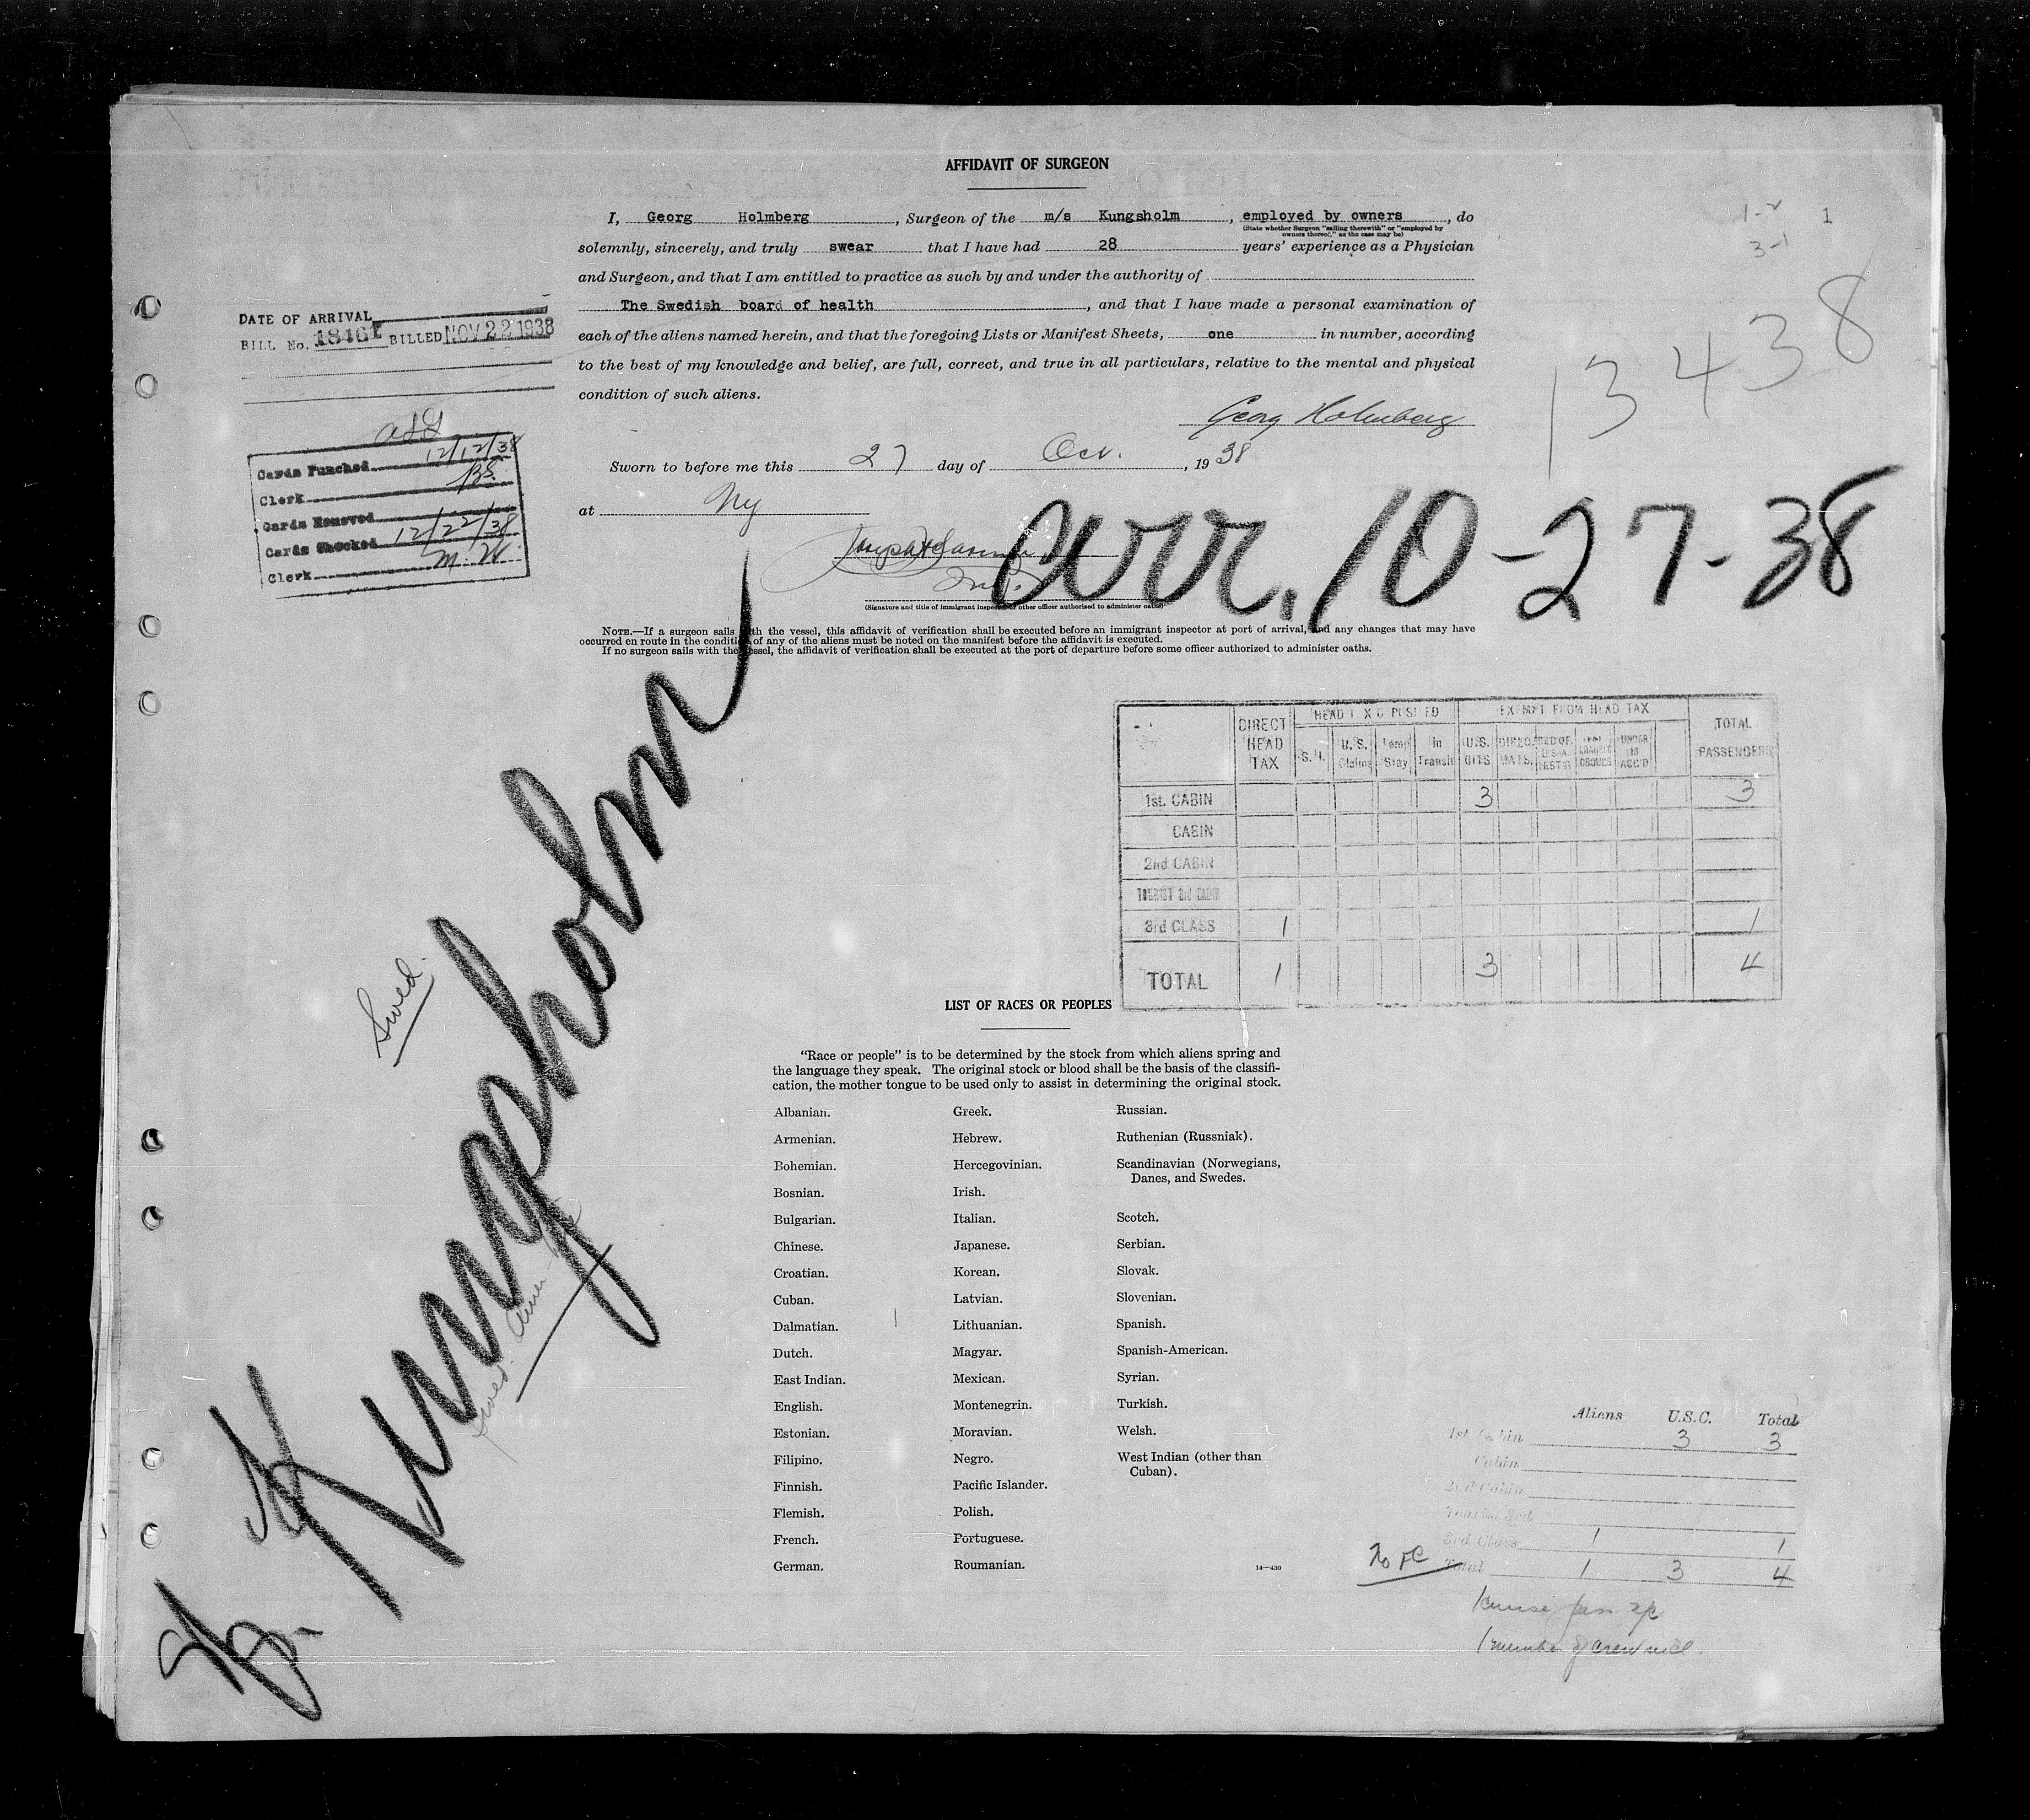 AFFIDAVIT OF SURGEON
I, Georg Holmberg, Surgeon of the m/s Kungsholm, employed by owners, do
(State whether Surgeon "sailing therewith" or "employed by
owners thereof," as the case may be)
solemnly, sincerely, and truly swear that I have had 28 years' experience as a Physician
and Surgeon, and that I am entitled to practice as such by and under the authority of
The Swedish board of health, and that I have made a personal examination of
each of the aliens named herein, and that the foregoing Lists or Manifest Sheets, one in number, according
to the best of my knowledge and belief, are full, correct, and true in all particulars, relative to the mental and physical
condition of such aliens.
Georg Holmberg
Sworn to before me this 27 day of Oct., 19 38
at Ny
(Signature and title of immigrant inspector or other officer authorized to administer oaths)
NOTE.—If a surgeon sails with the vessel, this affidavit of verification shall be executed before an immigrant inspector at port of arrival, and any changes that may have
occurred en route in the condition of any of the aliens must be noted on the manifest before the affidavit is executed.
If no surgeon sails with the vessel, the affidavit of verification shall be executed at the port of departure before some officer authorized to administer oaths.
1-2 1
3-1
13438
arr. 10-27-38
DATE OF ARRIVAL
BILL No. 18461 BILLED NOV 22 1938
Cards Punched 12/12/38
Clerk BS.
Cards Removed
Cards Checked 12/22/38
Clerk M.W.
Kungsholm
Swed.
Swed. Amer.
DIRECT HEAD TAX
HEAD TAX DEPOSITED
EXEMPT FROM HEAD TAX
TOTAL PASSENGERS
U.S. Claims Temp Stay In Transit U.S. CITS.
1st. CABIN 3 3
CABIN
2nd CABIN
TOURIST 3rd CABIN
3rd CLASS 1 1
TOTAL 1 3 4
LIST OF RACES OR PEOPLES
"Race or people" is to be determined by the stock from which aliens spring and
the language they speak. The original stock or blood shall be the basis of the classifi-
cation, the mother tongue to be used only to assist in determining the original stock.
Albanian.
Armenian.
Bohemian.
Bosnian.
Bulgarian.
Chinese.
Croatian.
Cuban.
Dalmatian.
Dutch.
East Indian.
English.
Estonian.
Filipino.
Finnish.
Flemish.
French.
German.
Greek.
Hebrew.
Hercegovinian.
Irish.
Italian.
Japanese.
Korean.
Latvian.
Lithuanian.
Magyar.
Mexican.
Montenegrin.
Moravian.
Negro.
Pacific Islander.
Polish.
Portuguese.
Roumanian.
Russian.
Ruthenian (Russniak).
Scandinavian (Norwegians,
Danes, and Swedes.
Scotch.
Serbian.
Slovak.
Slovenian.
Spanish.
Spanish-American.
Syrian.
Turkish.
Welsh.
West Indian (other than
Cuban).
14—430
Aliens U.S.C. Total
1st Cabin 3 3
Cabin
2nd Cabin
Tourist 3rd
3rd Class 1 1
Total 1 3 4
1 cruise
1 member of crew